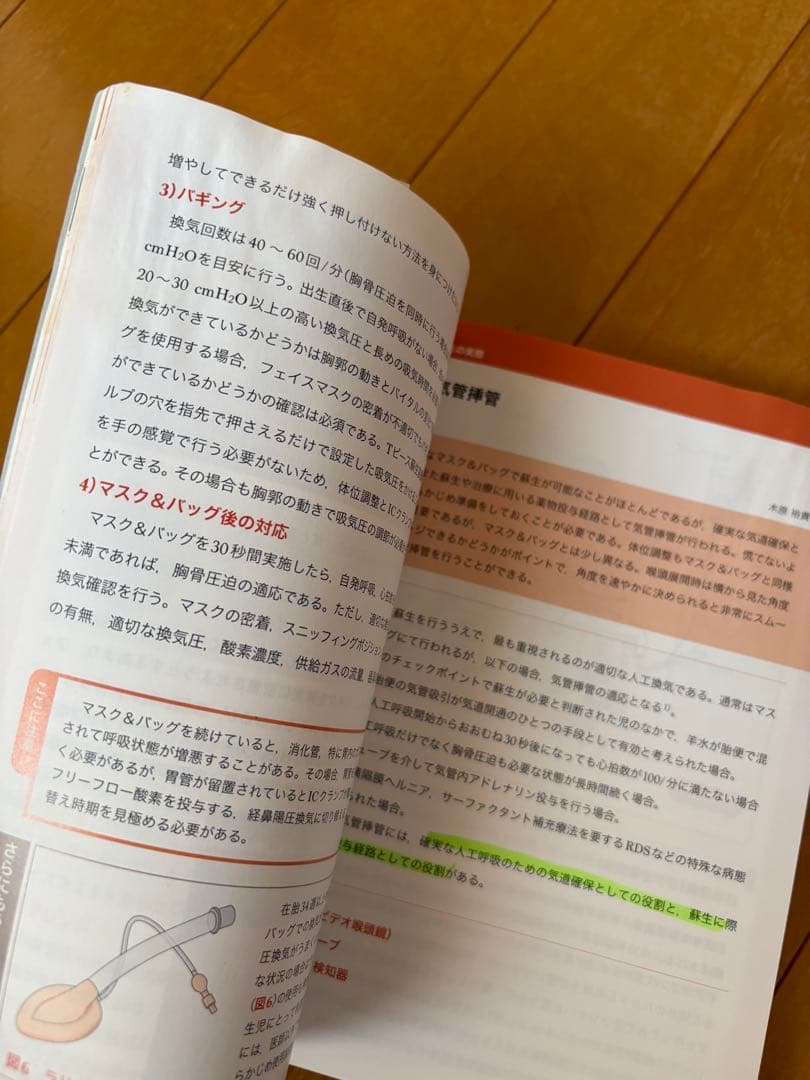 増やしてできるだけ強く押し付けない方法を身につけ
3)バギング
換気回数は40～60回/分(胸骨圧迫を同時に行う場合
cmH2Oを目安に行う。出生直後で自発呼吸がない場合,
20～30 cmH2O以上の高い換気圧と長めの吸気時間を
換気ができているかどうかは胸郭の動きとバイタルの
グを使用する場合,フェイスマスクの密着が不適切でも
ができているかどうかの確認は必須である。Tピース
ルブの穴を指先で押さえるだけで設定した吸気圧を
を手の感覚で行う必要がないため,体位調整とICクランプ
とができる。その場合も胸郭の動きで吸気圧の調節が必要
4)マスク&バッグ後の対応
マスク&バッグを30秒間実施したら,自発呼吸,
未満であれば,胸骨圧迫の適応である。ただし,適切な
換気確認を行う。マスクの密着,スニッフィングポジション
の有無,適切な換気圧,酸素濃度,供給ガスの流量,
ここに注意
マスク&バッグを続けていると,消化管,特に胃内
されて呼吸状態が増悪することがある。その場合,
く必要があるが,胃管が留置されているとICクランプ
フリーフロー酸素を投与する,経鼻陽圧換気に切り
替え時期を見極める必要がある。
在胎34週
バッグでの換
圧換気がうま
な状況の場合
(図6)の使用も
生児にとって
には,医師
らかじめ使用
図6
の実際
気管挿管
木原 裕貴
なマスク&バッグで蘇生が可能なことがほとんどであるが,確実な気道確保と
た蘇生や治療に用いる薬物投与経路として気管挿管が行われる。慌てないよ
らかじめ準備をしておくことが必要である。体位調整もマスク&バッグと同様
要であるが,マスク&バッグとは少し異なる。喉頭展開時は横から見た角度
ジできるかどうかがポイントで,角度を速やかに決められると非常にスムー
挿管を行うことができる。
蘇生を行ううえで,最も重視されるのが適切な人工換気である。通常はマス
グにて行われるが,以下の場合,気管挿管の適応となる1)。
のチェックポイントで蘇生が必要と判断された児のなかで,羊水が胎便で混
胎便の気管吸引が気道開通のひとつの手段として有効と考えられた場合。
人工呼吸開始からおおむね30秒後になっても心拍数が100/分に満たない場合
工呼吸だけでなく胸骨圧迫も必要な状態が長時間続く場合。
ューブを介して気管内アドレナリン投与を行う場合。
横隔膜ヘルニア,サーファクタント補充療法を要するRDSなどの特殊な病態
られた場合。
気管挿管には,確実な人工呼吸のための気道確保としての役割と,蘇生に際
与経路としての役割がある。
ビデオ喉頭鏡)
ーブ
検知器